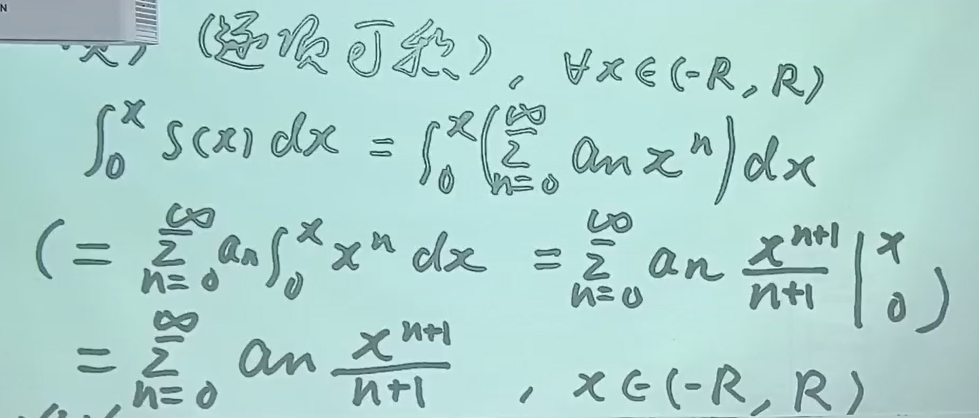 (逐项可积), ∀x∈(-R, R)
∫₀ˣ S(x) dx = ∫₀ˣ (∑_{n=0}^{∞} aₙ xⁿ) dx
(= ∑_{n=0}^{∞} aₙ ∫₀ˣ xⁿ dx = ∑_{n=0}^{∞} aₙ x^{n+1}/(n+1) |₀ˣ)
= ∑_{n=0}^{∞} aₙ x^{n+1}/(n+1) , x∈(-R, R)